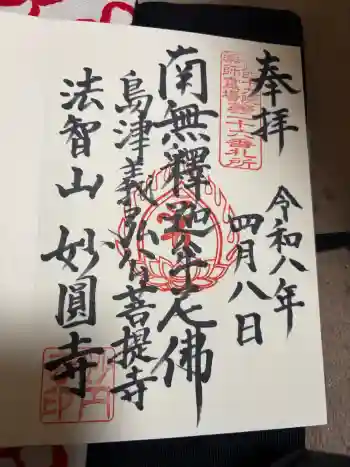 奉拝
第二十六番札所
令和八年
四月八日
南無釋迦牟尼佛
島津義弘公菩提寺
法智山 妙圓寺